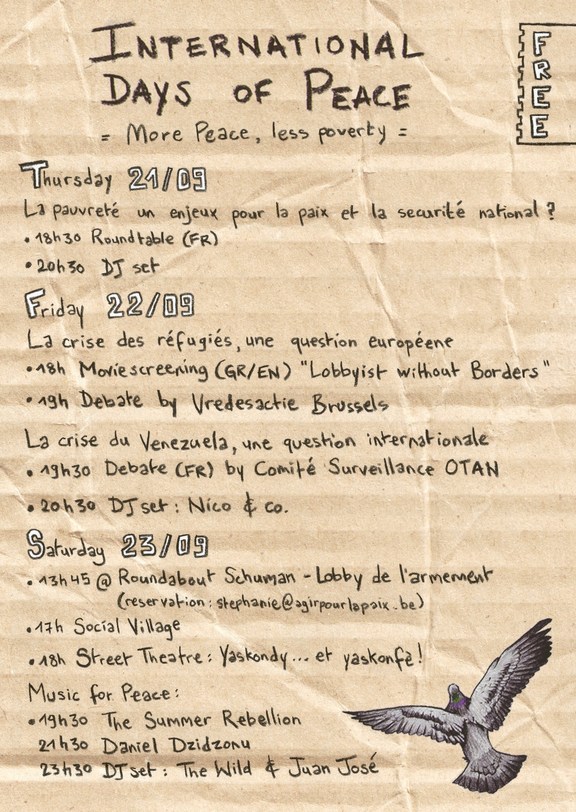 INTERNATIONAL
DAYS OF PEACE
= More Peace, less poverty =
FREE
Thursday 21/09
La pauvreté un enjeux pour la paix et la securité national ?
• 18h30 Roundtable (FR)
• 20h30 DJ set
Friday 22/09
La crise des réfugiés, une question européene
• 18h Moviescreening (GR/EN) "Lobbyist without Borders"
• 19h Debate by Vredesactie Brussels
La crise du Venezuela, une question internationale
• 19h30 Debate (FR) by Comité Surveillance OTAN
• 20h30 DJ set : Nico & co.
Saturday 23/09
• 13h45 @ Roundabout Schuman - Lobby de l'armement
(reservation : stephanie@agirpourlapaix.be)
• 17h Social Village
• 18h Street Theatre : Yaskondy... et yaskonfè !
Music for Peace :
• 19h30 The Summer Rebellion
21h30 Daniel Dzidzonu
23h30 DJ set : The Wild & Juan José